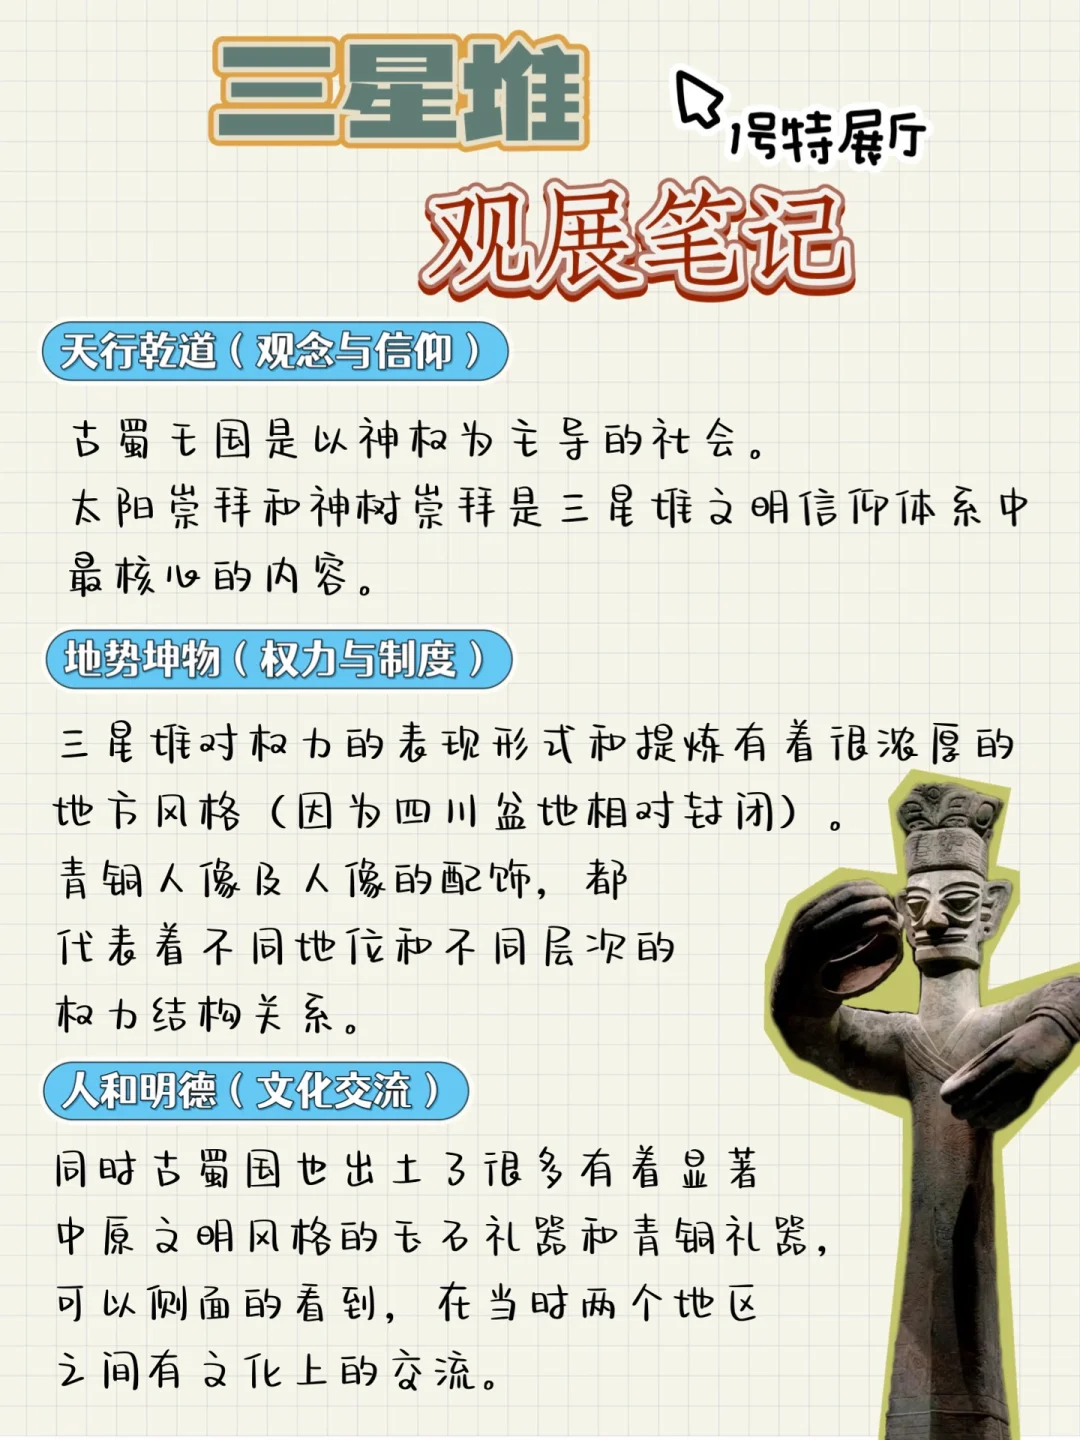 三星堆
1号特展厅
观展笔记
天行乾道（观念与信仰）
古蜀王国是以神权为主导的社会。
太阳崇拜和神树崇拜是三星堆文明信仰体系中
最核心的内容。
地势坤物（权力与制度）
三星堆对权力的表现形式和提炼有着很浓厚的
地方风格（因为四川盆地相对封闭）。
青铜人像及人像的配饰，都
代表着不同地位和不同层次的
权力结构关系。
人和明德（文化交流）
同时古蜀国也出土了很多有着显著
中原文明风格的玉石礼器和青铜礼器，
可以侧面的看到，在当时两个地区
之间有文化上的交流。